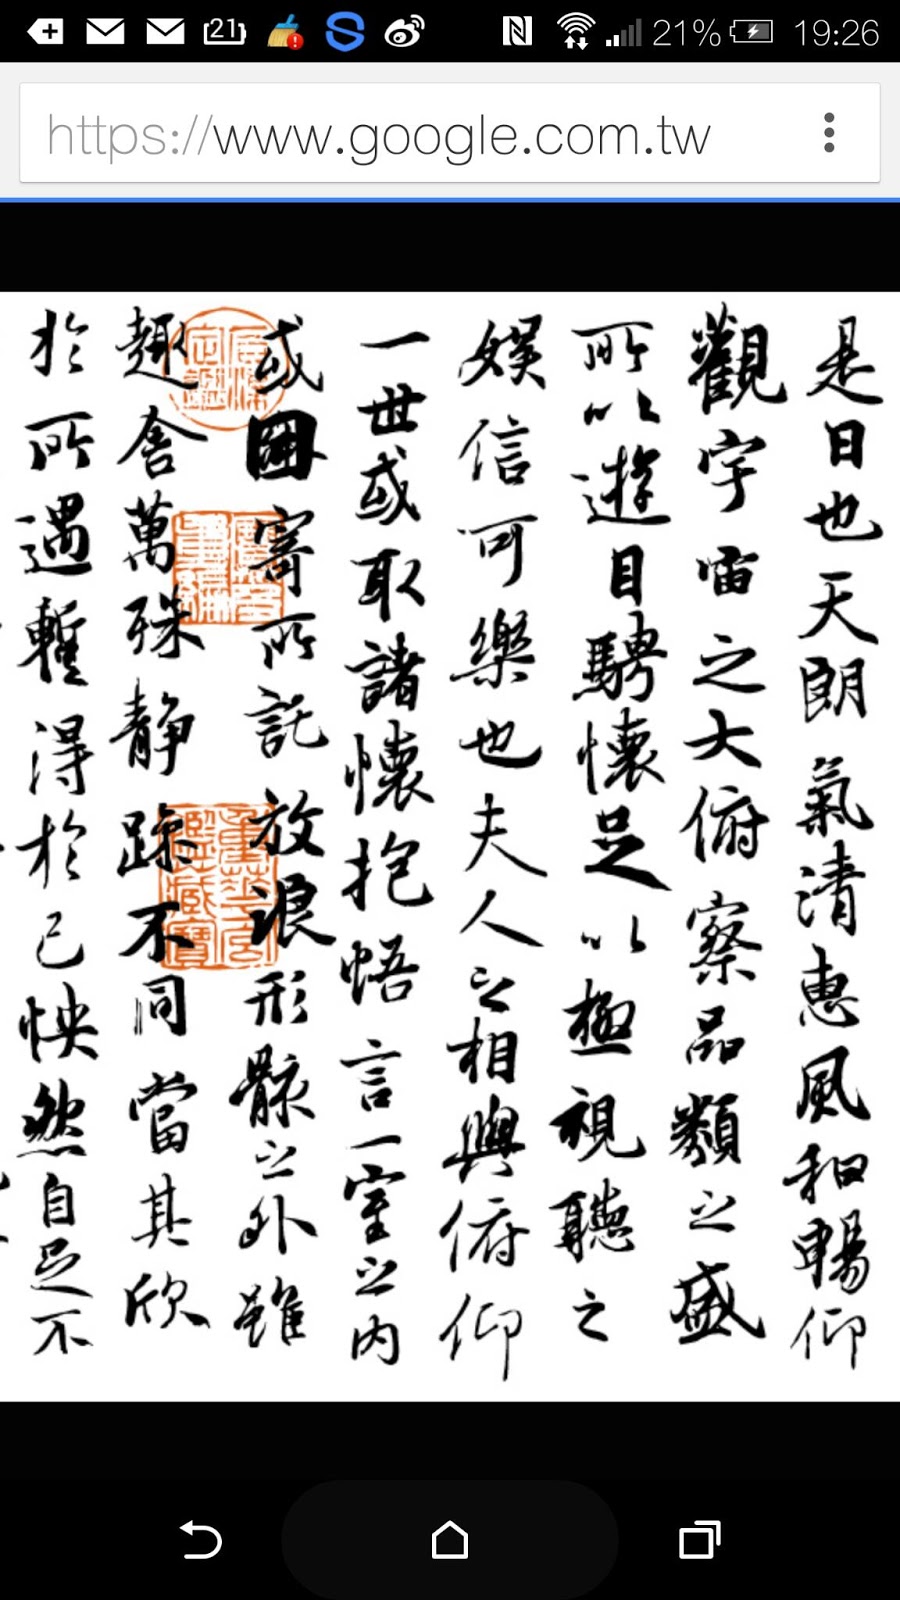 21
21%
19:26
https://www.google.com.tw
是日也天朗氣清惠風和暢仰
觀宇宙之大俯察品類之盛
所以遊目騁懷足以極視聽之
娛信可樂也夫人之相與俯仰
一世或取諸懷抱悟言一室之內
或因寄所託放浪形骸之外雖
趣舍萬殊靜躁不同當其欣
於所遇暫得於己怏然自足不